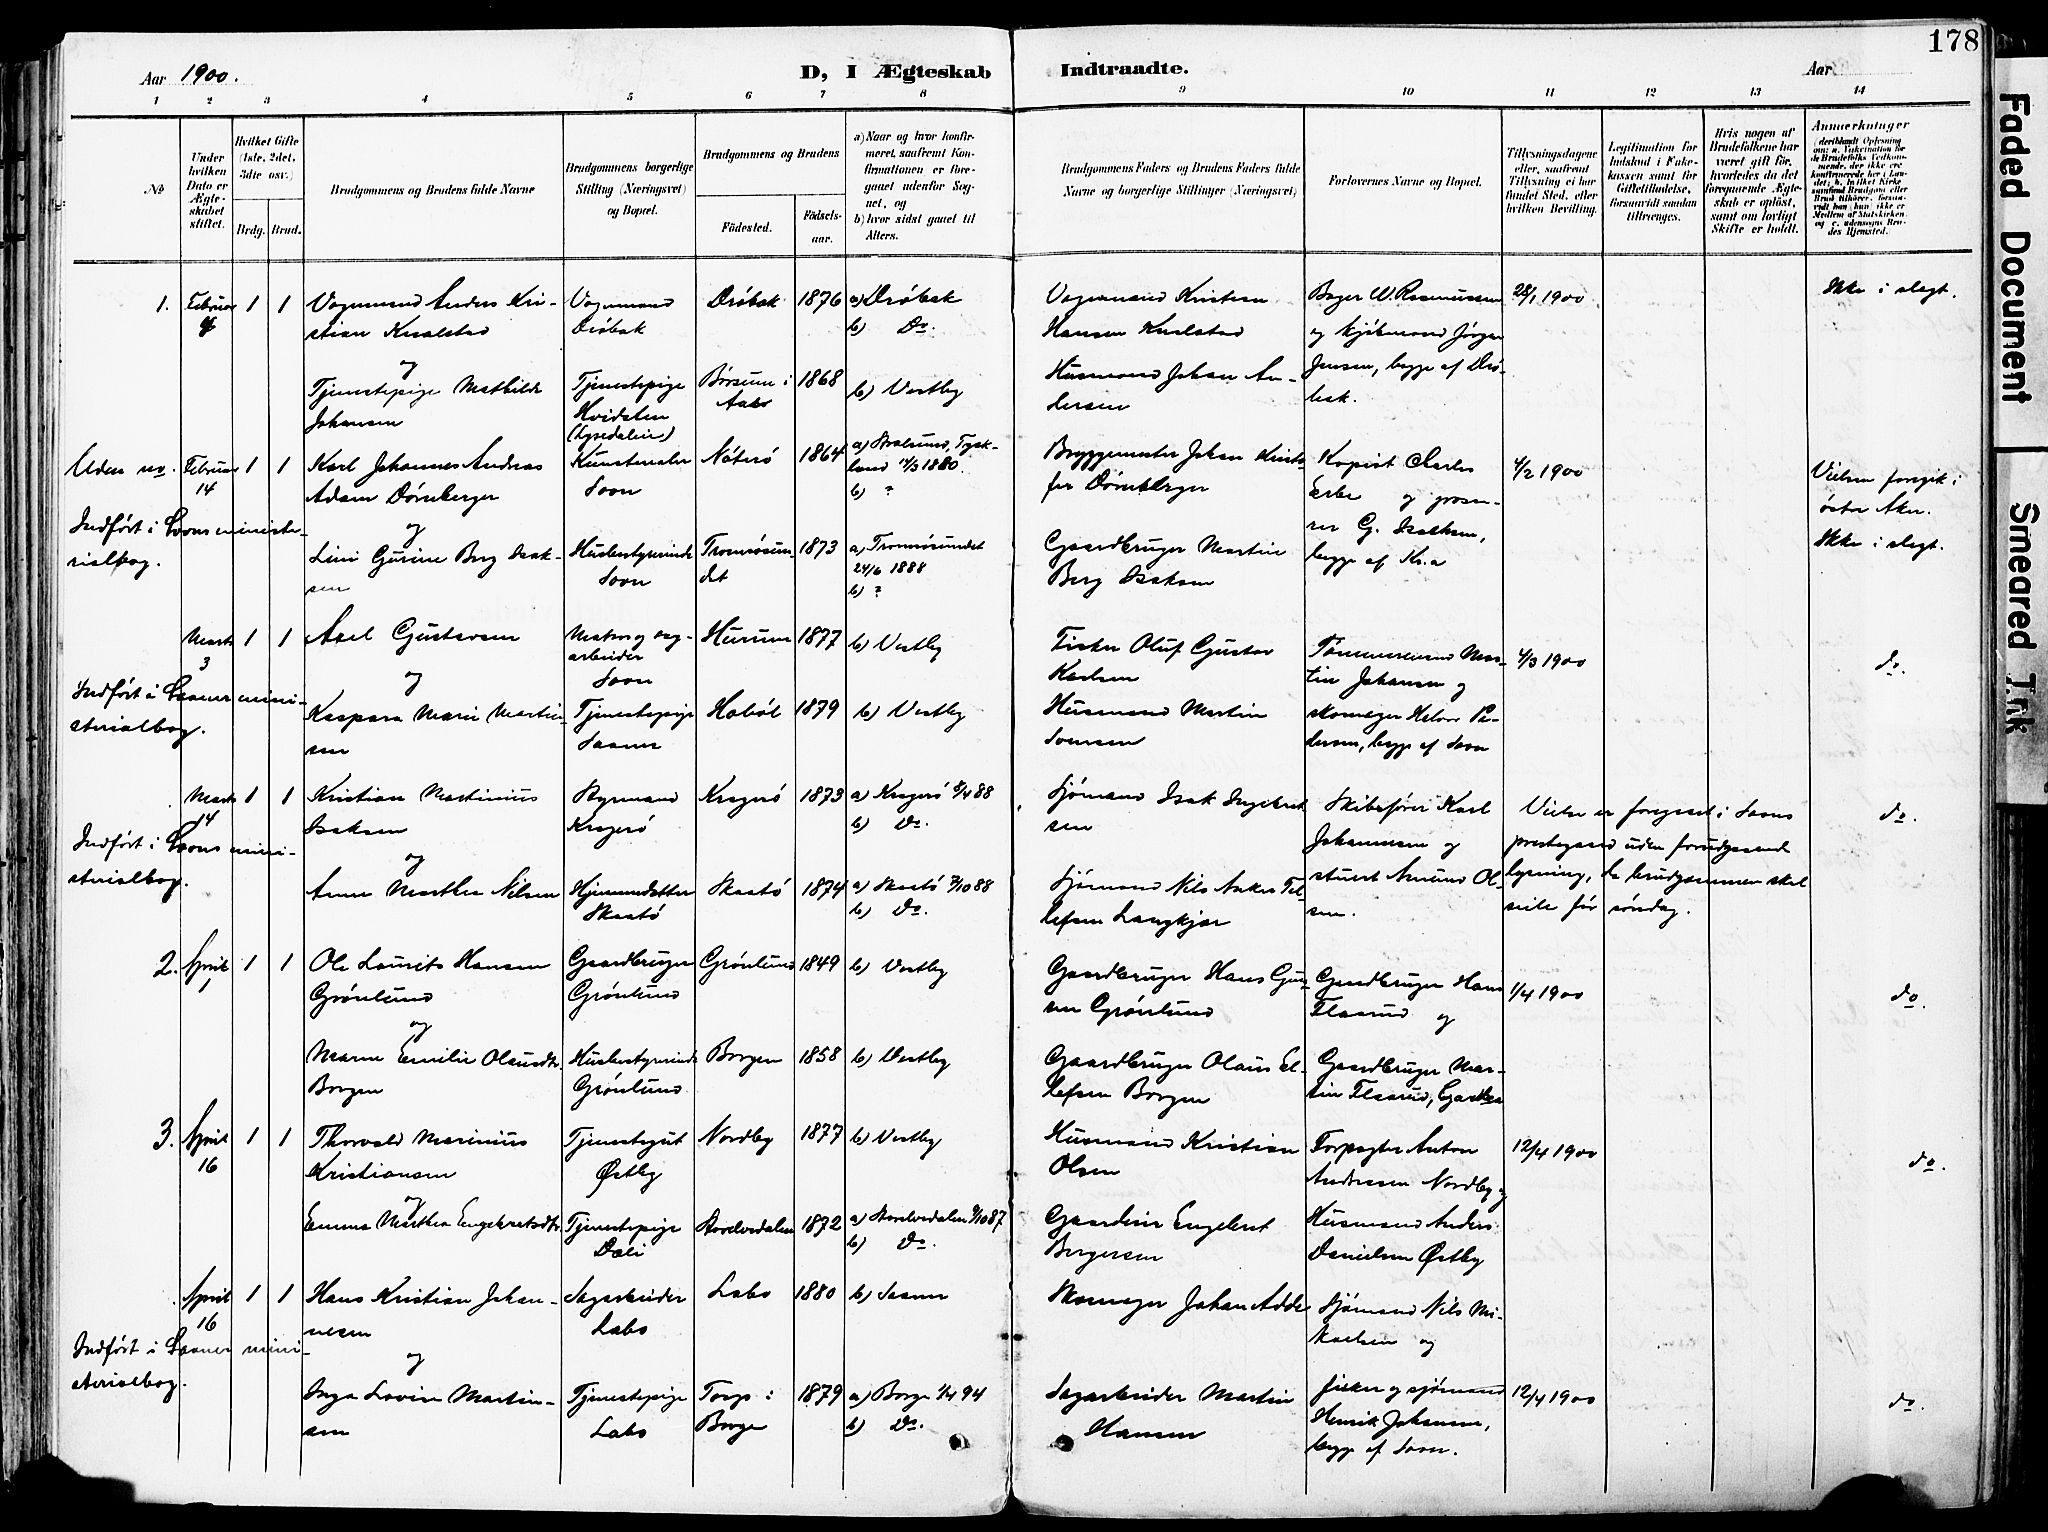 178
Aar 1900.
D, I Ægteskab
Indtraadte.
Aar
1 2 3 4 5 6 7 8 9 10 11 12 13 14
No
Under hvilken Dato er Ægteskabet stiftet.
Hvilket Gifte (1ste, 2det, 3die osv.)
Brdg. Brud.
Brudgommens og Brudens fulde Navne
Brudgommens borgerlige Stilling (Næringsvei) og Bopæl.
Brudgommens og Brudens
Födested.
Födsels-aar.
a) Naar og hvor konfirmeret, saafremt Konfirmationen er foregaaet udenfor Sognet, og
b) hvor sidst gaaet til Alters.
Brudgommens Faders og Brudens Faders fulde Navne og borgerlige Stillinger (Næringsvei)
Forlovernes Navne og Bopæl.
Tillysningsdagene eller, saafremt Tillysning ei har fundet Sted, efter hvilken Bevilling.
Legitimation for Indskud i Enkekassen samt for Giftetilladelse, forsaavidt saadan tiltrænges.
Hvis nogen af Brudefolkene har været gift för, hvorledes da det foregaaende Ægteskab er oplöst, samt om lovligt Skifte er holdt.
Anmerkninger
1. Februar 4 1 1 Vognmand Anders Kristian Knalstad
Vognmand Drøbak
Drøbak 1876 a) Drøbak
b) Do.
Vognmand Kristian Hansen Knalstad
Bager W. Rasmussen og kjøbmand Jørgen Jensen, begge af Drøbak.
28/1 1900
Ikke i slegt.
og
Tjenestepige Mathilde Johansen
Tjenestepige Hvidsten (Lysedalen)
Børsum i Aas 1868
b) Vestby
Husmand Johan Andersen
Uden no. Februar 14 1 1 Karl Johannes Andreas Adam Dørnberger
Kunstmaler Soon
Nøterø 1864 a) Stralsund, Tyskland 1880.
b) ?
Bryggemester Johan Kristofer Dørnberger
Kopist Charles
og
G. Isaksen, begge af Kr.a
4/2 1900
Vielsen foregik i østre Aker.
Ikke i slegt.
Indført i Soons ministerialbog.
og
Lini Gurine Berg Isaksen
Husbestyrerinde Soon
Tromsøsundet 1873 a) Tromsøsundet 24/6 1888
b) ?
Gaardbruger Martin Berg Isaksen
Marts 3 1 1 Axel Gustavsen
arbeider Soon
Hurum 1877 b) Vestby
Fisker Oluf Gustav Karlsen
Tømmermand Martin Johansen og skomager Halvor Pedersen, begge af Soon
4/3 1900
do.
Indført i Saaner ministerialbog.
og
Kaspara Marie Martinsen
Tjenestepige Saaner
Hobøl 1879 b) Vestby
Husmand Martin Svensen
Marts 14 1 1 Kristian Martinius Isaksen
Styrmand Kragerø
Kragerø 1873 a) Kragerø 8/4 88
b) Do.
Sjømand Isak Ingebretsen
Skibsfører Karl Johannesen og stuert Amund Olsen.
Vielse er foregaaet i Soons prestegaard uden forudgaaende lysning, da brudgommen skal seile før søndag.
do.
Indført i Soons ministerialbog.
og
Anne Marthea Nilsen
Hjemmedatter Skaatø
Skaatø 1874 a) Skaatø 7/10 88
b) Do.
Sjømand Nils Anker Tellefsen Langkjær
2. April 1 1 1 Ole Laurits Hansen Grønlund
Gaardbruger Grønlund
Grønlund 1849 b) Vestby
Gaardbruger Hans Grønlund
Gaardbruger Hans Flaarud og
1/4 1900
do.
og
Maren Emilie Olausdtr Borgen
Husbestyrerinde Grønlund
Borgen 1858 b) Vestby
Gaardbruger Olaus Ellefsen Borgen
Gaardbruger Martin Flaarud,
3. April 16 1 1 Thorvald Marinius Kristiansen
Tjenestegut Østby
Nordby 1877 b) Vestby
Husmand Kristian Olsen
Forpagter Anton Andresen Nordby og
12/4 1900
do.
og
Emma Marthea Engebretsdtr
Tjenestepige Dæli
Storelvedalen 1872 a) Storelvedalen 9/10 87
b) Do.
Gaardeier Engebret Borgersen
Husmand Anders Danielsen Østby
April 16 1 1 Hans Kristian Johannesen
Sagarbeider Labo
Labo 1880 b) Saaner
Skomager Johan Adde
Sjømand Nils Mikaelsen og
Indført i Saaner ministerialbog.
og
Inga Lovise Martinsen
Tjenestepige Labo
Torp i Borge 1879 a) Borge 1/4 94
b) Do.
Sagarbeider Martin Hansen
fisker og sjømand Henrik Johansen, begge af Soon.
12/4 1900
do.
Faded Document
Smeared Trik